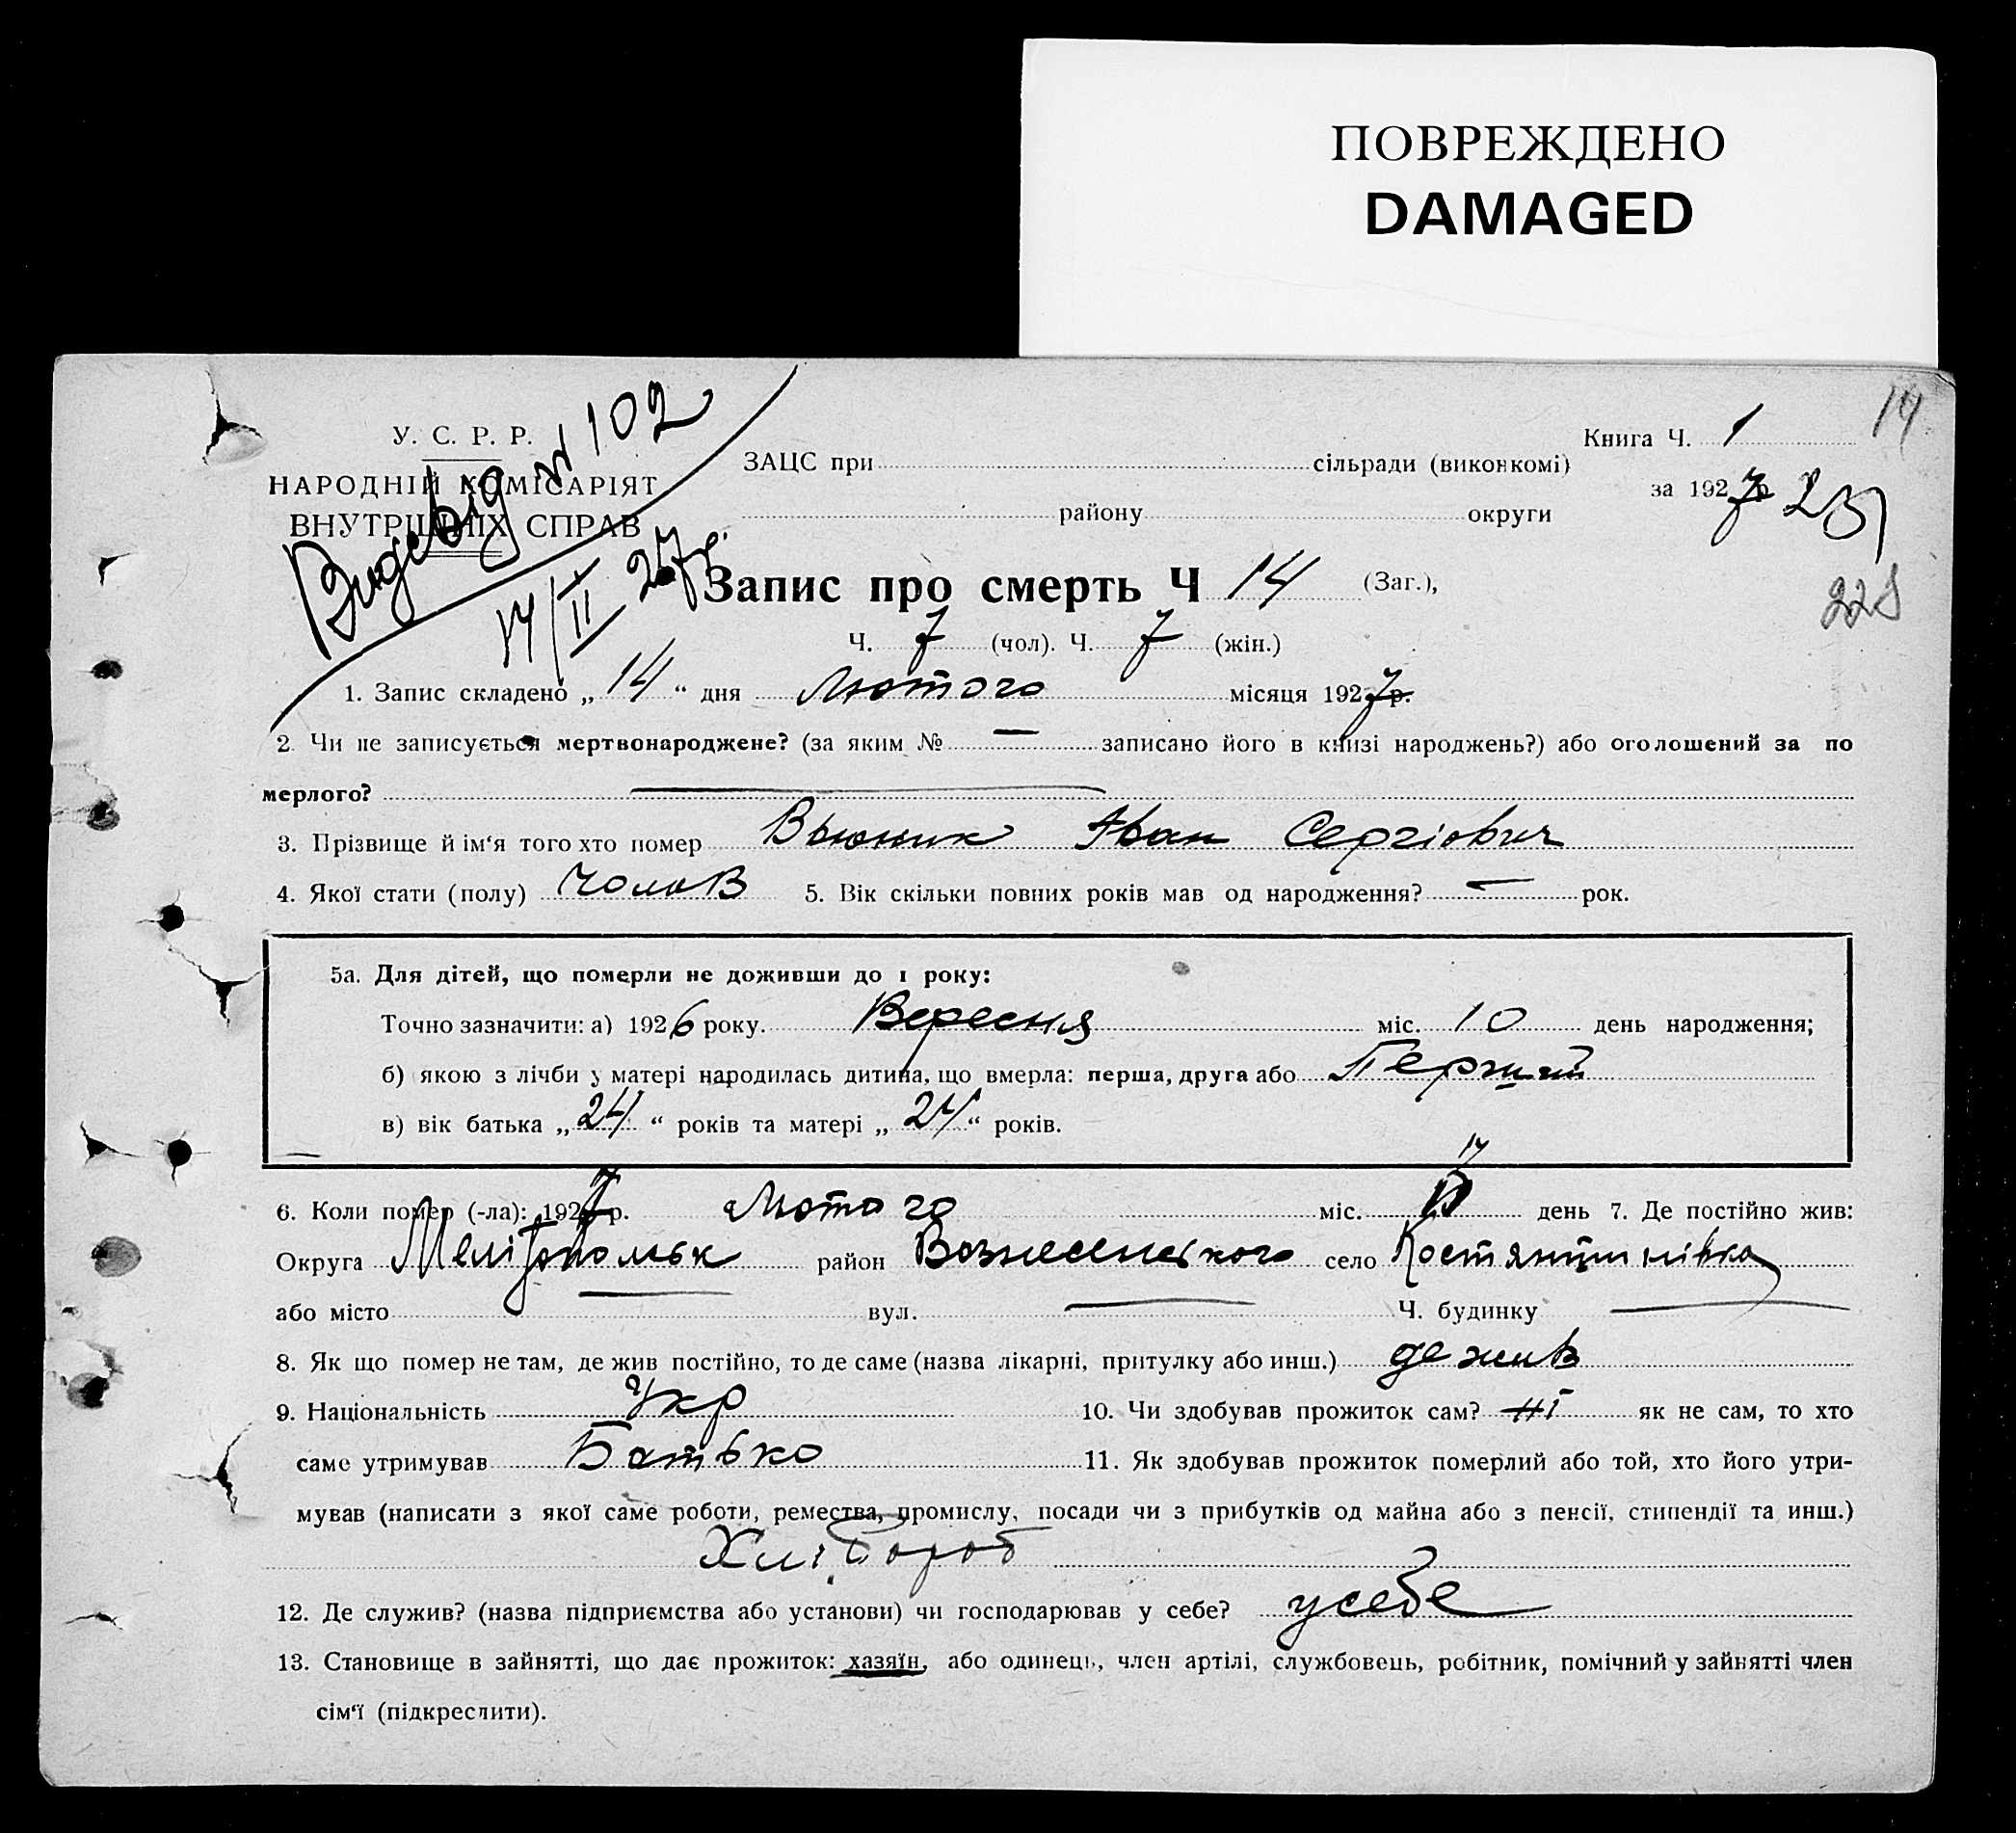 ПОВРЕЖДЕНО
DAMAGED
14
У. С. Р. Р.
НАРОДНІЙ КОМІСАРІЯТ
ВНУТРІШНІХ СПРАВ
102
14/II 27р.
ЗАЦС при сільради (виконкомі)
району округи
Книга Ч. 1
за 1927р
228
Запис про смерть Ч 14 (Заг.),
Ч. 7 (чол). Ч. 7 (жін.)
1. Запис складено „ 14 “ дня Лютого місяця 1927р.
2. Чи не записується мертвонароджене? (за яким № — записано його в книзі народжень?) або оголошений за по
мерлого? —
3. Прізвище й ім‘я того хто помер Вьюник Іван Сергіович
4. Якої стати (полу) Чолов 5. Вік скільки повних років мав од народження? — рок.
5а. Для дітей, що померли не доживши до 1 року:
Точно зазначити: а) 1926 року. Вересня міс. 10 день народження;
б) якою з лічби у матері народилась дитина, що вмерла: перша, друга або Перший
в) вік батька „ 24 “ років та матері „ 24 “ років.
6. Коли помер (-ла): 1927р. Лютого міс. день 7. Де постійно жив:
Округа Мелітопольськ район Вознесенського село Костянтинівка
або місто — вул. — Ч. будинку —
8. Як що помер не там, де жив постійно, то де саме (назва лікарні, притулку або инш.) де жив
9. Національність Укр 10. Чи здобував прожиток сам? ні як не сам, то хто
саме утримував Батько 11. Як здобував прожиток померлий або той, хто його утри-
мував (написати з якої саме роботи, ремества, промислу, посади чи з прибутків од майна або з пенсії, стипендії та инш.)
Хлібороб
12. Де служив? (назва підприємства або установи) чи господарював у себе? у себе
13. Становище в зайнятті, що дає прожиток: хазяїн, або одинець, член артілі, службовець, робітник, помічний у зайнятті член
сім‘ї (підкреслити).